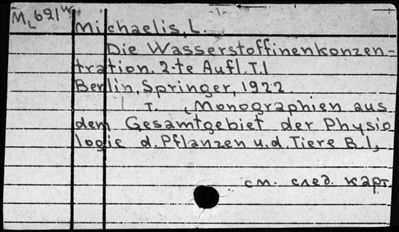 ML621w
Michaelis, L.
Die Wasserstoffinenkonzen-
tration. 2-te Aufl. T.1
Berlin, Springer, 1922
T. , Monographien aus
dem Gesamtgebiet der Physio
logie d. Pflanzen u. d. Tiere B.1,
см. след. карт.